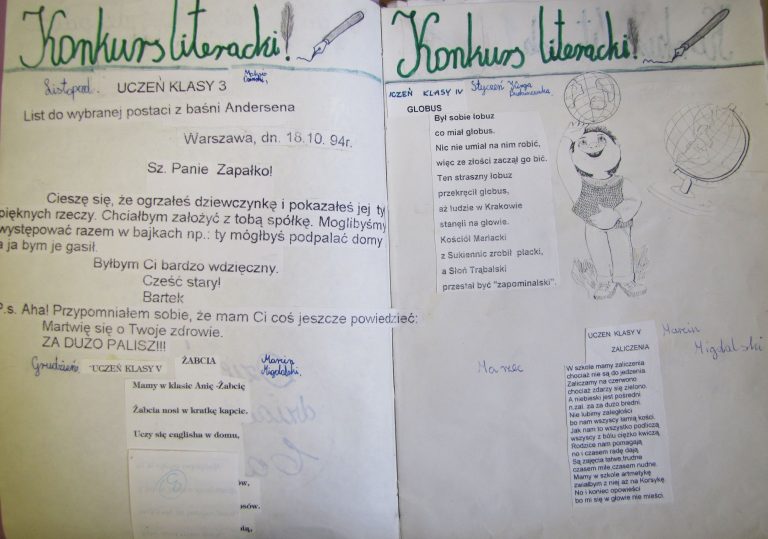 Konkurs literacki!
Listopad. UCZEŃ KLASY 3
List do wybranej postaci z baśni Andersena
Warszawa, dn. 18.10. 94r.
Sz. Panie Zapałko!
Cieszę się, że ogrzałeś dziewczynkę i pokazałeś jej ty
pięknych rzeczy. Chciałbym założyć z tobą spółkę. Moglibyśmy
występować razem w bajkach np.: ty mógłbyś podpalać domy
a ja bym je gasił.
Byłbym Ci bardzo wdzięczny.
Cześć stary!
Bartek
P.s. Aha! Przypomniałem sobie, że mam Ci coś jeszcze powiedzieć:
Martwię się o Twoje zdrowie.
ZA DUŻO PALISZ!!!
Grudzień "UCZEŃ KLASY V ŻABCIA Marcin
Migdalski,
Mamy w klasie Anię -Żabcię
Żabcia nosi w kratkę kapcie.
Uczy się englisha w domu,
Konkurs literacki!
UCZEŃ KLASY IV Styczeń Kinga
GLOBUS
Był sobie łobuz
co miał globus.
Nic nie umiał na nim robić,
więc ze złości zaczął go bić.
Ten straszny łobuz
przekręcił globus,
aż ludzie w Krakowie
stanęli na głowie.
Kościół Mariacki
z Sukiennic zrobił placki,
a Słoń Trąbalski
przestał być "zapominalski".
Marzec
UCZEŃ KLASY V Marcin
Migdalski
ZALICZENIA
W szkole mamy zaliczenia
chociaż nie są do jedzenia.
Zaliczamy na czerwono
chociaż zdarzy się zielono.
A niebieski jest pośredni
n.zal. za za dużo bredni.
Nie lubimy zaległości
bo nam wszyscy łamią kości.
Jak nam to wszystko podliczą
wszyscy z bólu ciężko kwiczą.
Rodzice nam pomagają
no i czasem radę dają.
Są zajęcia łatwe,trudne
czasem miłe,czasem nudne.
Mamy w szkole artmetykę
zwiałbym z niej aż na Korsykę.
No i koniec opowieści
bo mi się w głowie nie mieści.